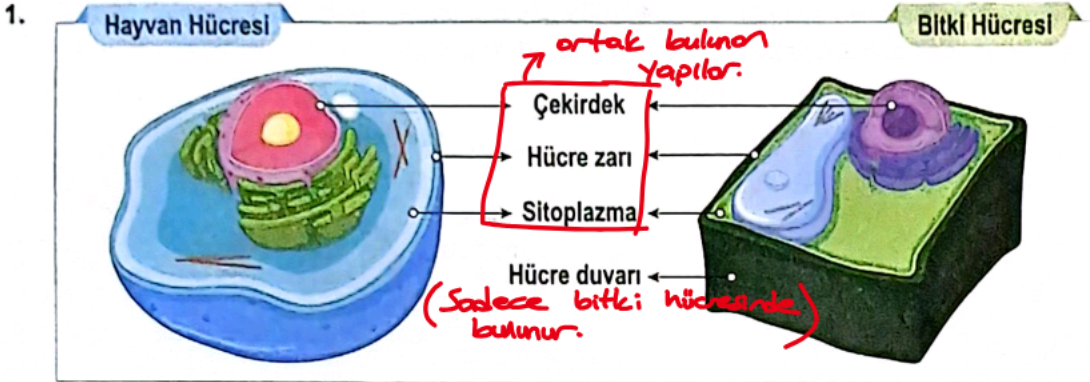 1.
Hayvan Hücresi
Bitki Hücresi
ortak bulunan
yapılar.
Çekirdek
Hücre zarı
Sitoplazma
Hücre duvarı
(Sadece bitki hücresinde)
bulunur.